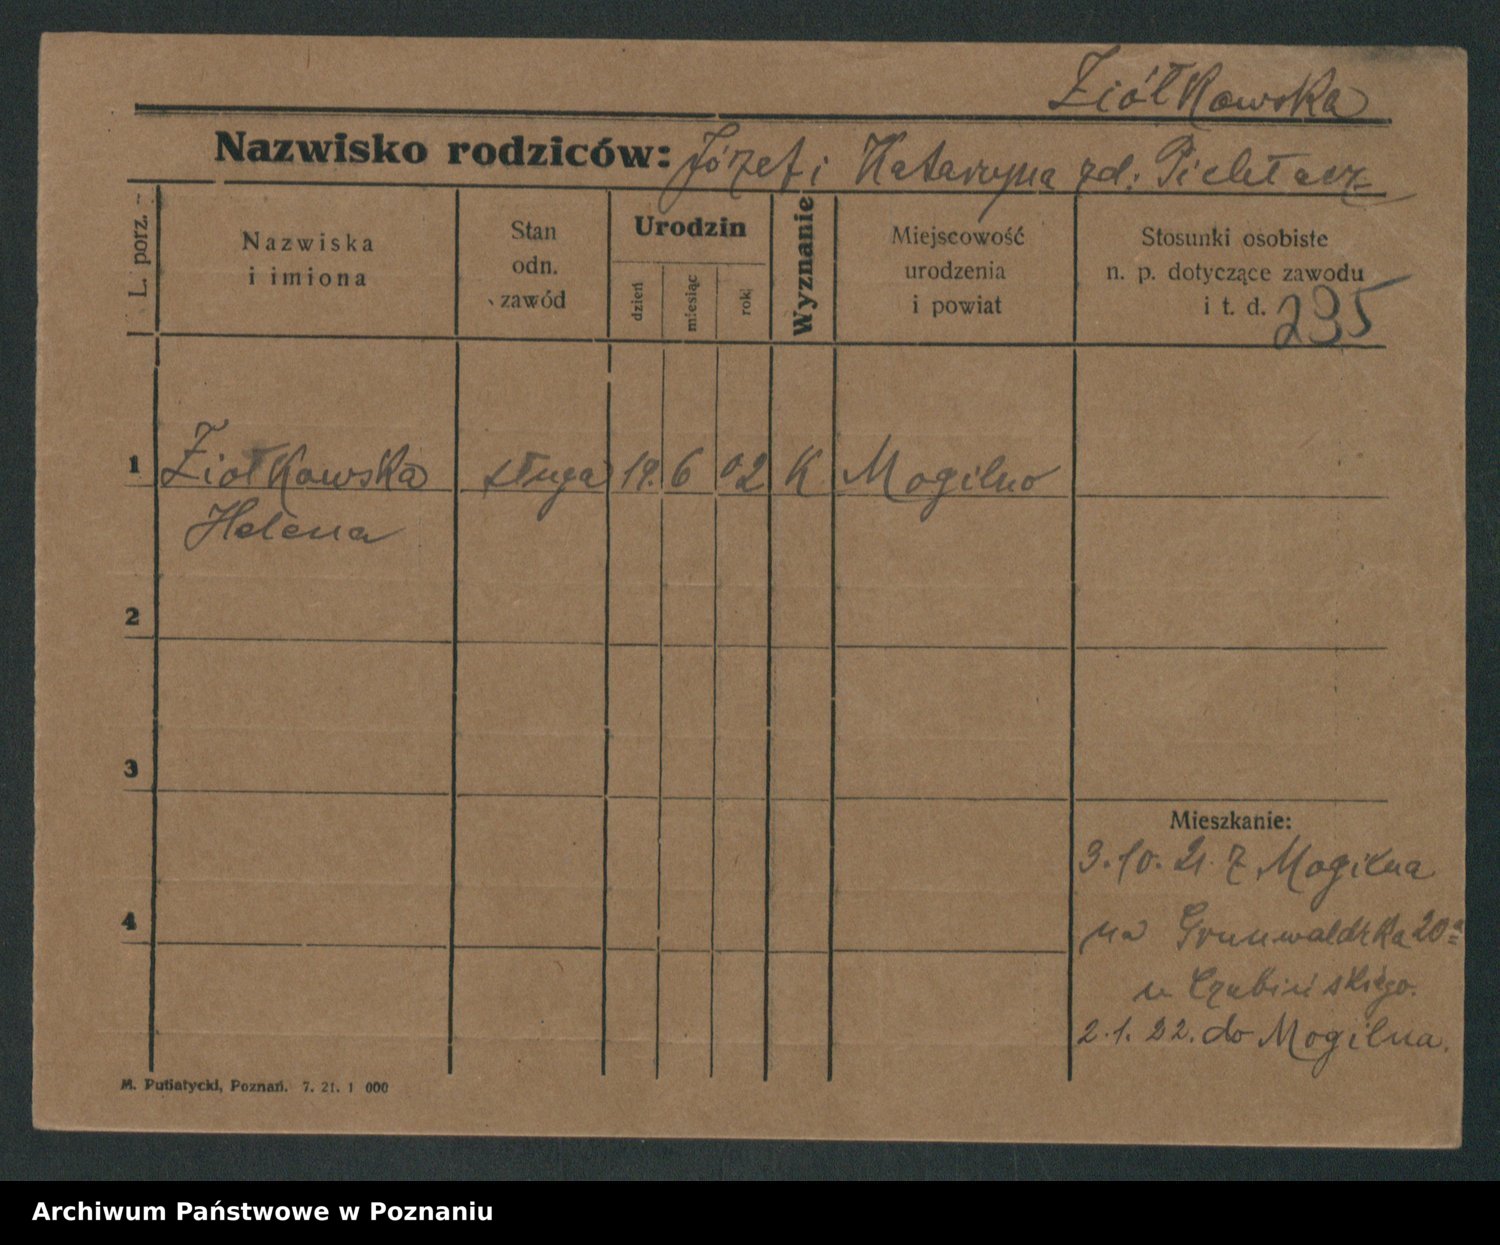 Ziółkowska
Nazwisko rodziców: Józef i Katarzyna zd:
L. porz.
Nazwiska
i imiona
Stan
odn.
zawód
Urodzin
dzień
miesiąc
rok
Wyznanie
Miejscowość
urodzenia
i powiat
Stosunki osobiste
n. p. dotyczące zawodu
i t. d. 295
1 Ziołkowska sługa 19. 6 02 K Mogilno
Helena
2
3
4
Mieszkanie:
3.10.21. z Mogilna
na Grunwaldzka 20
u Czubińskiego.
2.1.22. do Mogilna.
M. Putiatycki, Poznań. 7. 21. 1 000
Archiwum Państwowe w Poznaniu